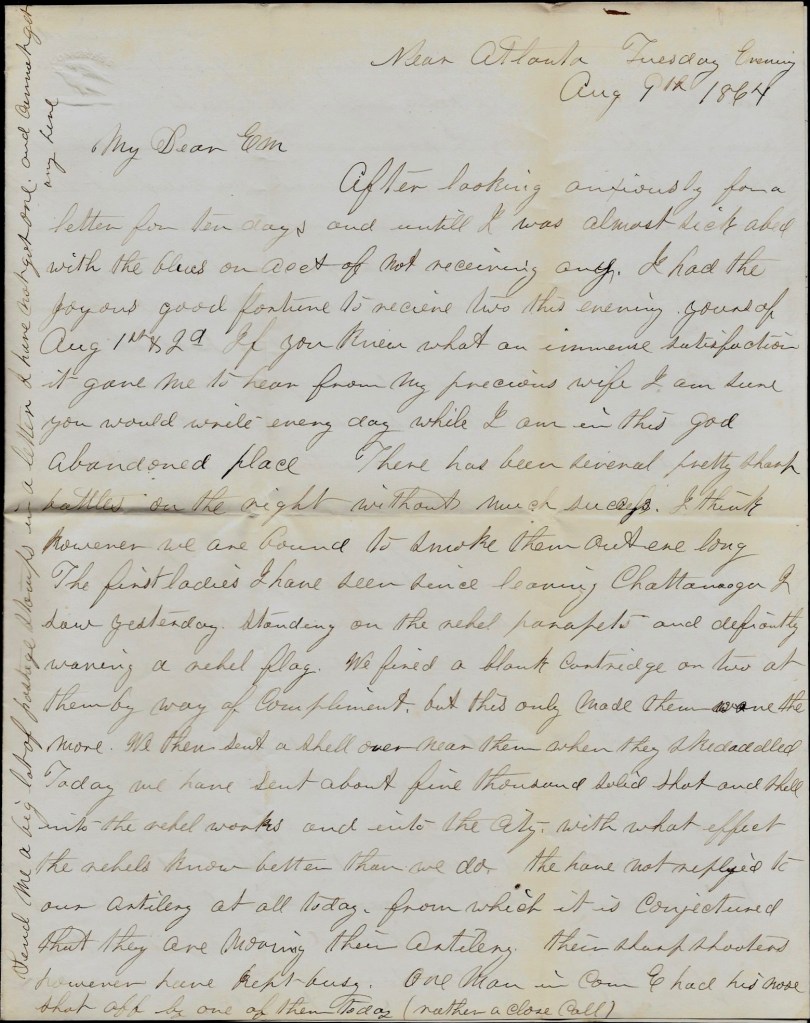 Near Atlanta Tuesday Evening
Aug 9th 1864
My Dear Em
After looking anxiously for a
letter for ten days and untill I was almost sick abed
with the blues on acct of not receiving any, I had the
joyous good fortune to recieve two this evening yours of
Aug 1st & 2d If you knew what an immense satisfaction
it gave me to hear from my precious wife I am sure
you would write every day while I am in this god
abandoned place There has been several pretty sharp
battles on the right without much success. I think
however we are bound to smoke them out ere long
The first ladies I have seen since leaving Chattanooga I
saw yesterday. standing on the rebel parapets and defiantly
waving a rebel flag. We fired a blank cartridge or two at
them by way of compliment, but this only made them wave the
more. We then sent a shell over near them when they skedaddled
Today we have sent about five thousand solid shot and shell
into the rebel works and into the City. with what effect
the rebels know better than we do. the have not replyed to
our artilery at all today. from which it is conjectured
that they are moving their artilery. their sharp shooters
however have kept busy. One man in Com E had his nose
shot off by one of them today (rather a close call)
Send me a big lot of postage stamps in a letter I have not got one. and cannot get
any here